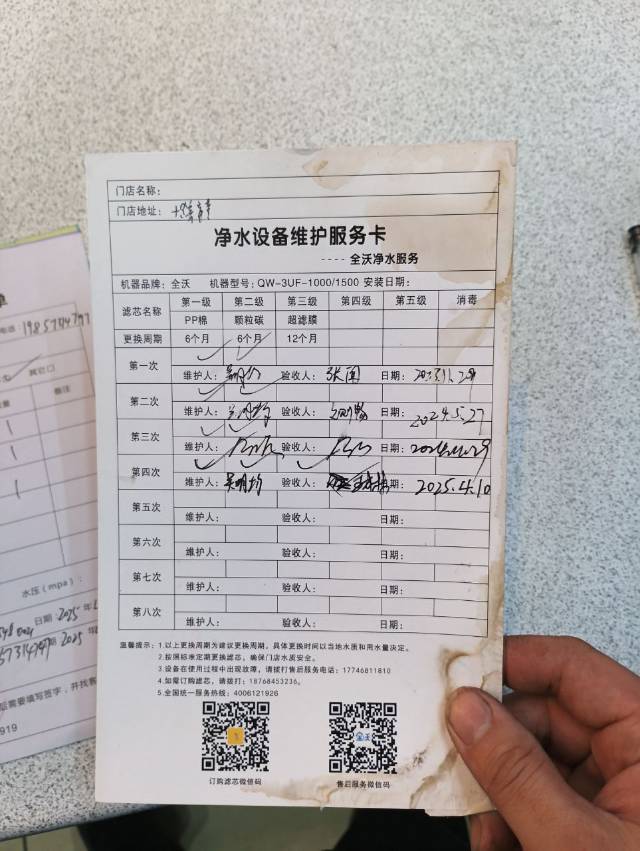 门店名称：
门店地址：
净水设备维护服务卡
---- 全沃净水服务
机器品牌：全沃 机器型号：QW-3UF-1000/1500 安装日期：
滤芯名称 第一级 第二级 第三级 第四级 第五级 消毒
PP棉 颗粒碳 超滤膜
更换周期 6个月 6个月 12个月
第一次
维护人： 验收人： 日期：
第二次
维护人： 验收人： 日期：2024.5.27
第三次
维护人： 验收人： 日期：
第四次
维护人：吴明均 验收人： 日期：2025.4.10
第五次
维护人： 验收人： 日期：
第六次
维护人： 验收人： 日期：
第七次
维护人： 验收人： 日期：
第八次
维护人： 验收人： 日期：
温馨提示：1.以上更换周期为建议更换周期，具体更换时间以当地水质和用水量决定。
2.按照标准定期更换滤芯，确保门店水质安全。
3.设备在使用过程中出现故障，请拨打售后服务电话：17746811810
4.如需订购滤芯，请拨打：18768453236。
5.全国统一服务热线：4006121926
订购滤芯微信码 售后服务微信码
单
电话
其它口
备注
水压（mpa）：
日期 2025 年
2025
需要填写签字，并找客
919